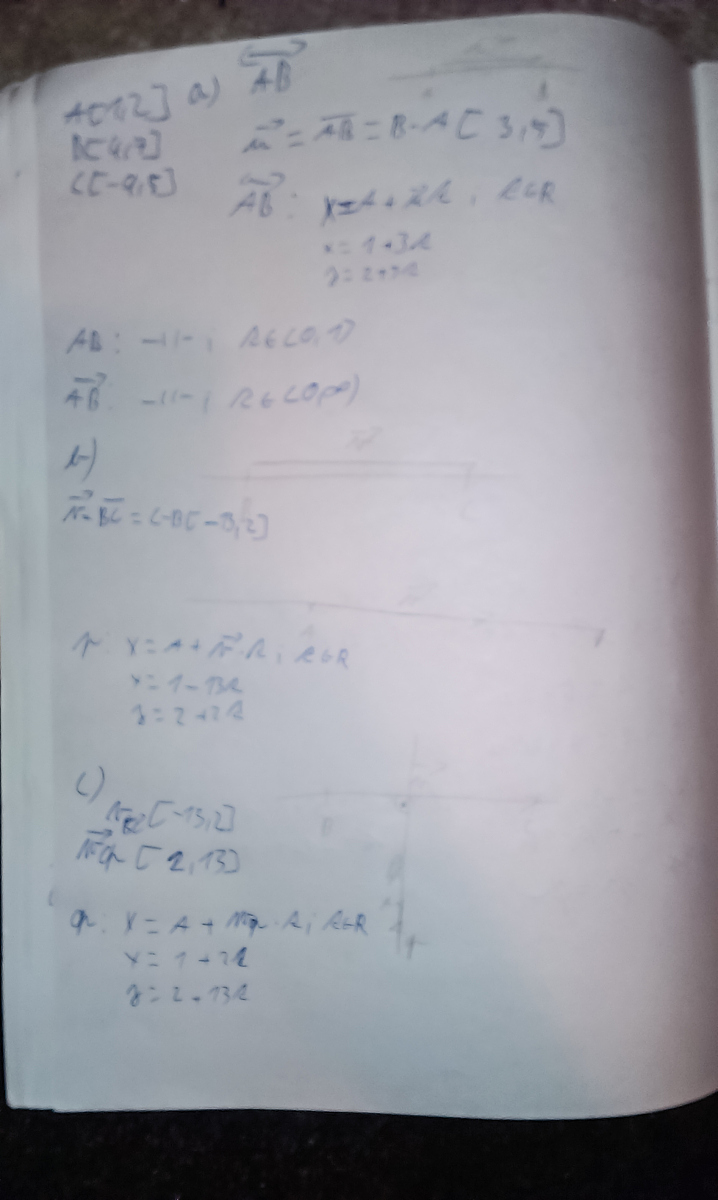 A[1,2] a) AB
B[4,7] u = AB = B-A [3,5]
C[-9,9]
AB: X=A+ut; t∈R
x = 1+3t
y = 2+5t
AB: -||-; t∈<0,1>
AB: -||-; t∈<0,∞)
b)
v=BC = C-B[-13,2]
p: X=A+v·t; t∈R
x=1-13t
y=2+2t
c)
BC[-13,2]
[2,13]
q: X=A+ t; t∈R
x=1+2t
y=2+13t